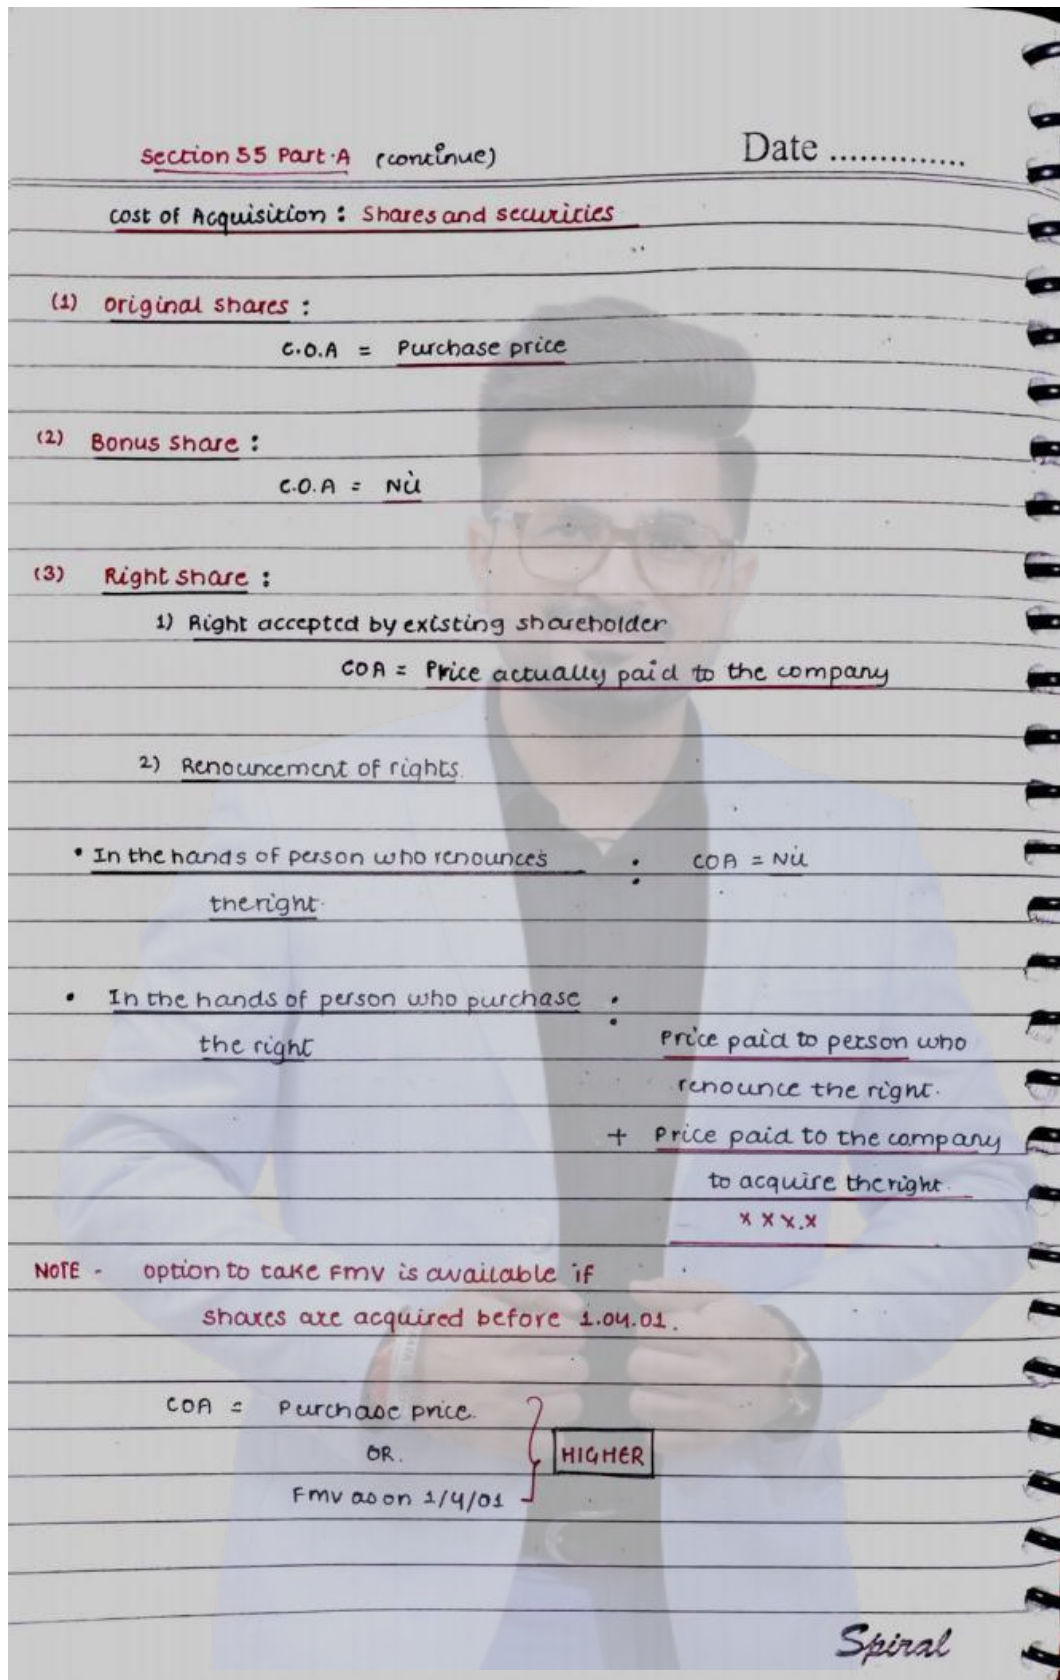 Section 55 Part-A (continue)
Date ..............
Cost of Acquisition : Shares and securities
(1) original shares :
C.O.A = Purchase price
(2) Bonus share :
C.O.A = Nil
(3) Right share :
1) Right accepted by existing shareholder
COA = Price actually paid to the company
2) Renouncement of rights.
• In the hands of person who renounces : COA = Nil
the right.
• In the hands of person who purchase :
the right
Price paid to person who
renounce the right.
+ Price paid to the company
to acquire the right.
x x x.x
NOTE - option to take FMV is available if
shares are acquired before 1.04.01.
COA = Purchase price.
OR.
HIGHER
Fmv as on 1/4/01
Spiral